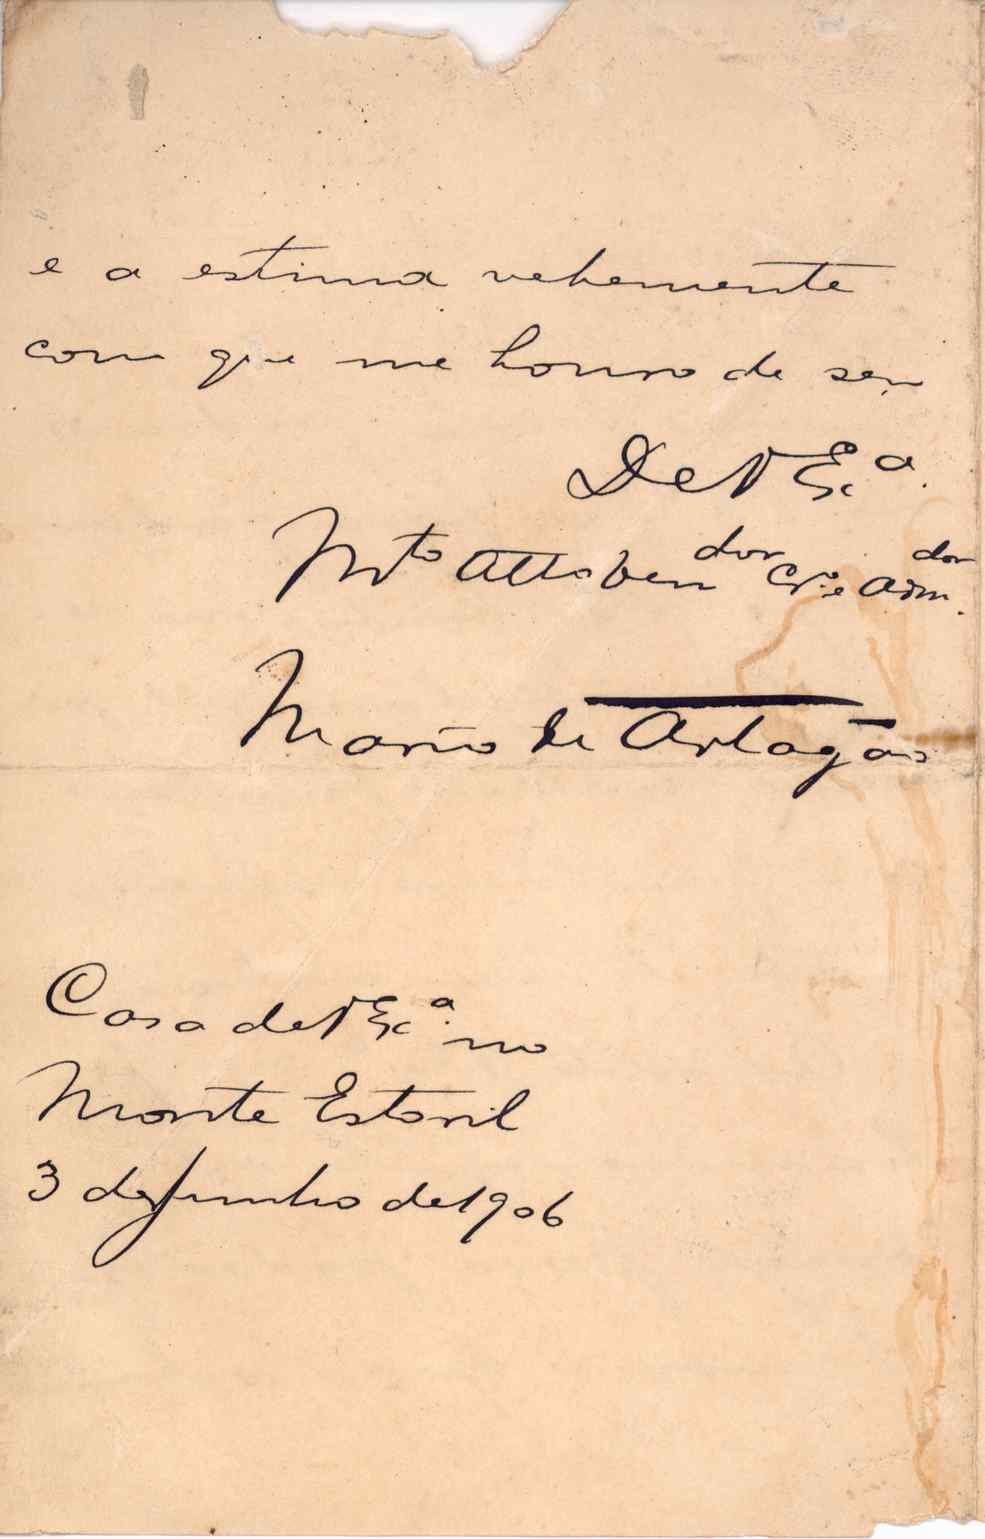 e a estima vehemente
com que me honro de ser
De V Exª.
Mto Atto Vendor Cr.º e Admdor.
Mario de Artagão
Casa de V Exª. no
Monte Estoril
3 de Junho de 1906